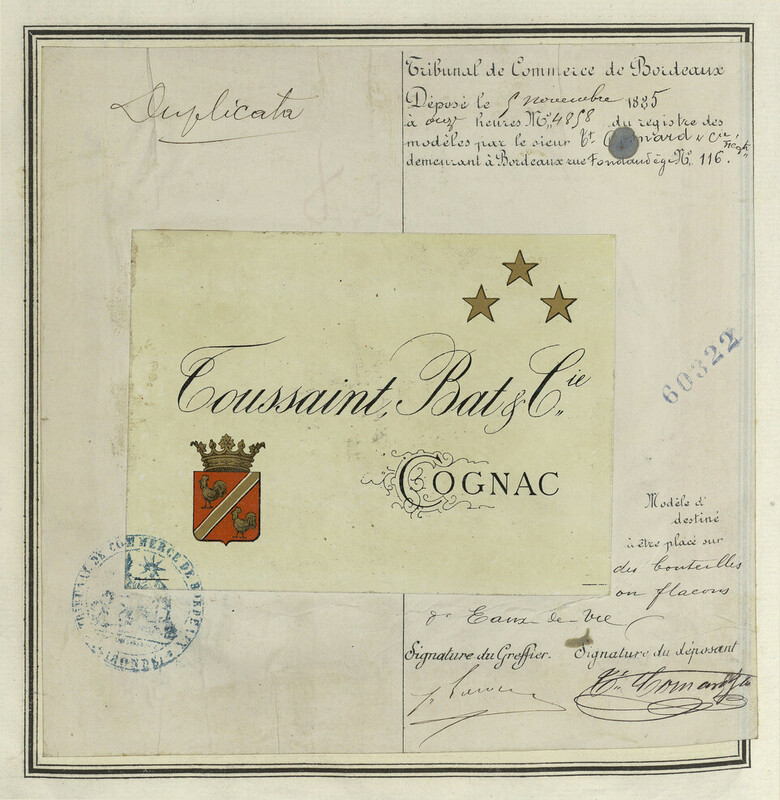 Duplicata
Tribunal de Commerce de Bordeaux
Déposé le 5 novembre 1885
à onze heures Nº 4858 du registre des
modèles par le sieur Vt. & Cie
demeurant à Bordeaux rue Fondaudège Nº 116.
Toussaint, Bat & Cie
COGNAC
60322
Modèle d'
destiné
à être placé sur
des bouteilles
ou flacons
d'Eaux-de-Vie
Signature du Greffier. Signature du déposant
TRIBUNAL DE COMMERCE DE BORDEAUX